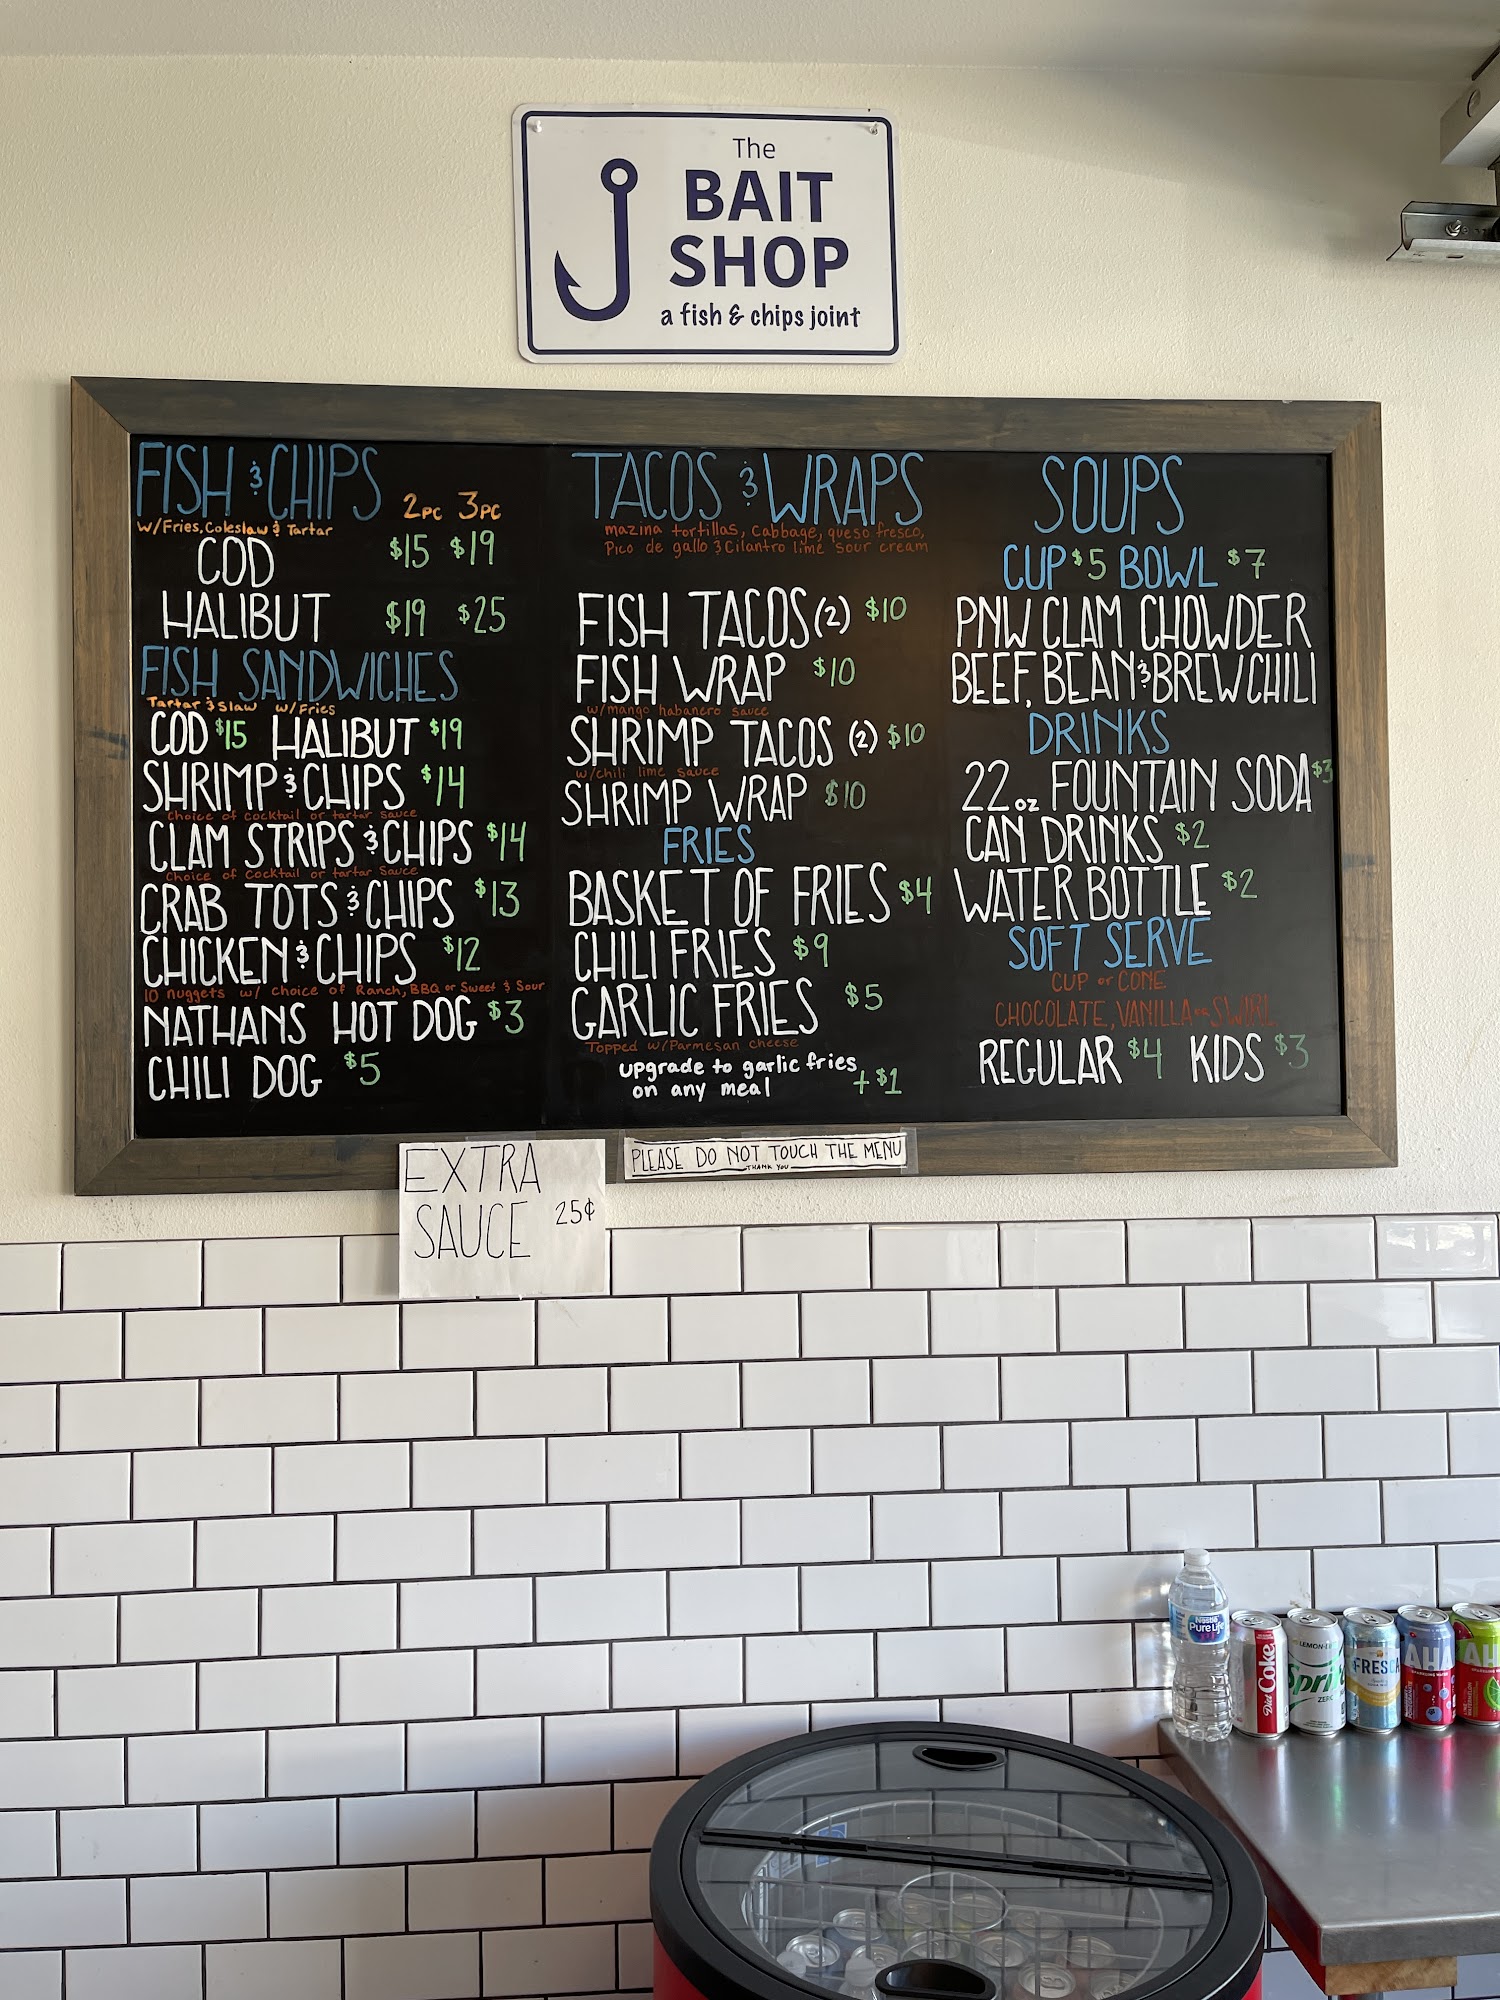 The
BAIT
SHOP
a fish & chips joint
FISH & CHIPS 2PC 3PC
W/Fries, Coleslaw & Tartar
COD $15 $19
HALIBUT $19 $25
FISH SANDWICHES
Tartar & Slaw w/Fries
COD $15 HALIBUT $19
SHRIMP & CHIPS $14
Choice of cocktail or tartar sauce
CLAM STRIPS & CHIPS $14
Choice of cocktail or tartar sauce
CRAB TOTS & CHIPS $13
CHICKEN & CHIPS $12
10 nuggets w/ choice of Ranch, BBQ or Sweet & Sour
NATHANS HOT DOG $3
CHILI DOG $5
TACOS & WRAPS
mazina tortillas, cabbage, queso fresco,
Pico de gallo & Cilantro lime sour cream
FISH TACOS (2) $10
FISH WRAP $10
w/mango habanero sauce
SHRIMP TACOS (2) $10
w/chili lime sauce
SHRIMP WRAP $10
FRIES
BASKET OF FRIES $4
CHILI FRIES $9
GARLIC FRIES $5
Topped w/Parmesan cheese
upgrade to garlic fries
on any meal +$1
SOUPS
CUP $5 BOWL $7
PNW CLAM CHOWDER
BEEF, BEAN & BREW CHILI
DRINKS
22oz FOUNTAIN SODA $3
CAN DRINKS $2
WATER BOTTLE $2
SOFT SERVE
CUP or CONE
CHOCOLATE, VANILLA or SWIRL
REGULAR $4 KIDS $3
EXTRA
SAUCE 25¢
PLEASE DO NOT TOUCH THE MENU
THANK YOU
Nestle
Pure Life
Diet Coke
LEMON-
Sprite
ZERO
FRESCA
AHA
AH